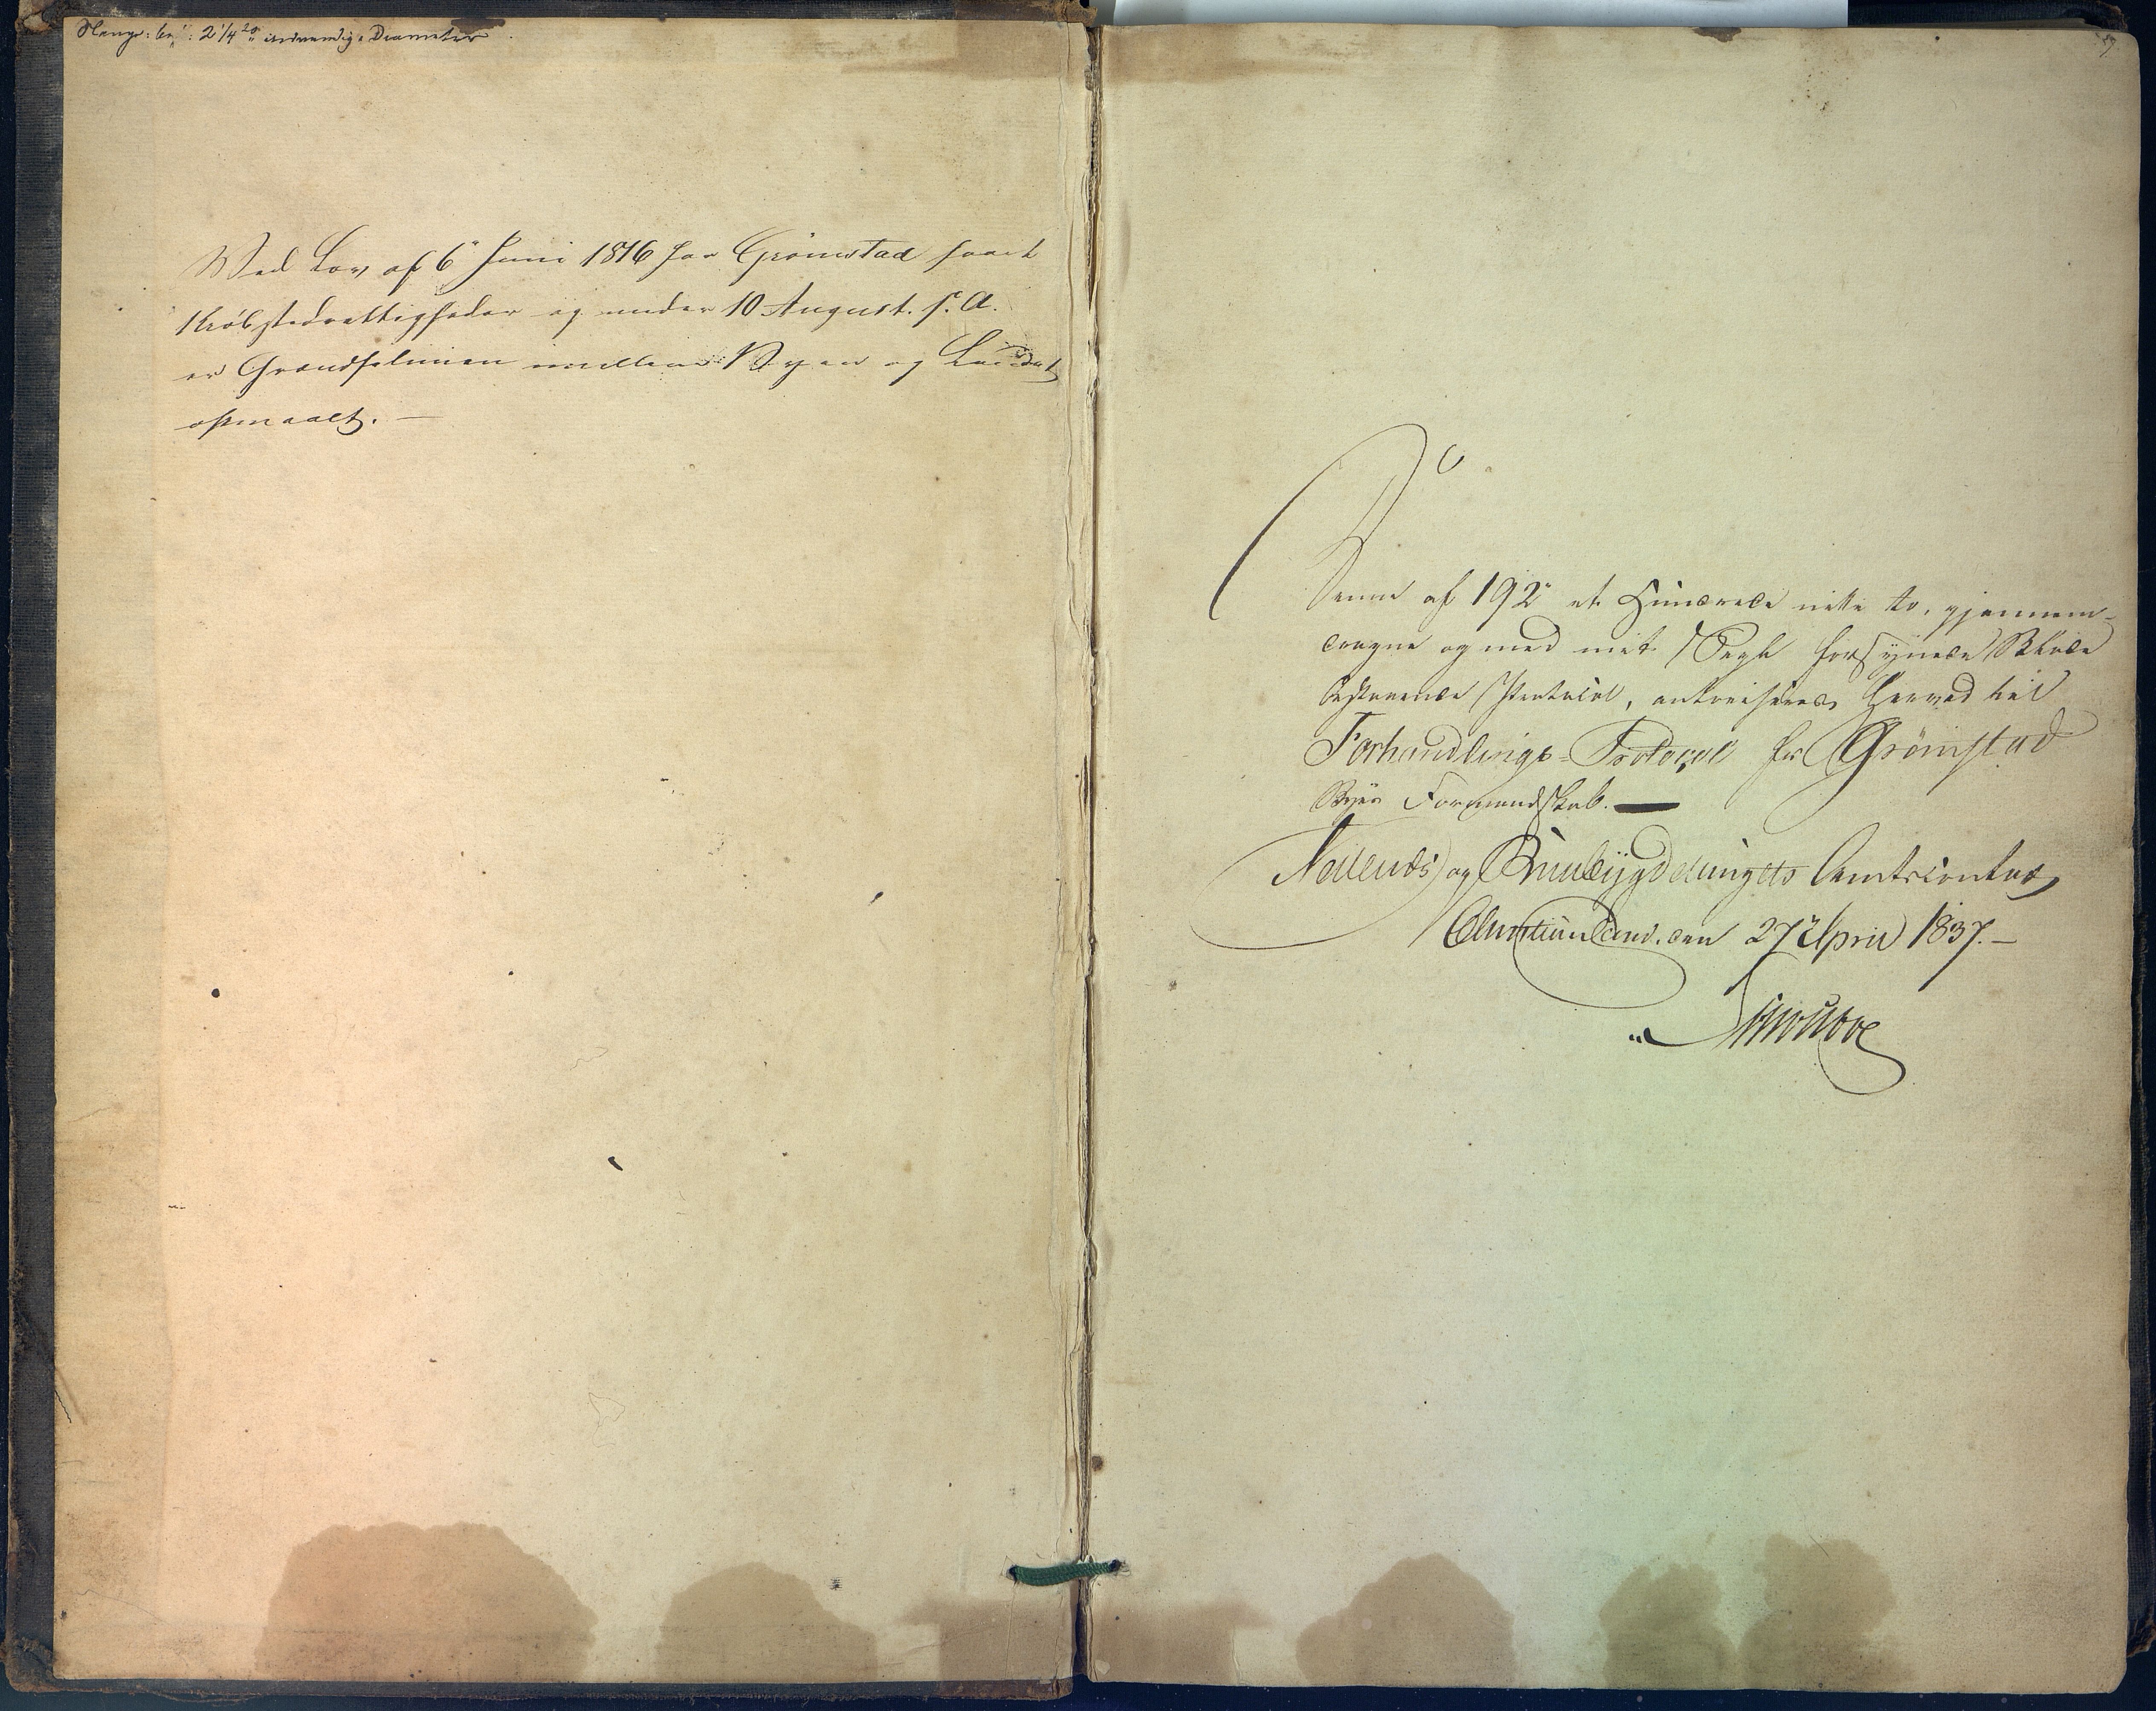 2 1/4 indvendig Diameter
Ved Lov af 6 Juni 1816 har Grömstad faaet
Kiöbstedrettigheder og under 10 August. s. A.
er Grændselinien imellem Byen og Landet
opmaalt. —
Denne af 192 et Hundrede nitti to, gjennem-
dragne og med mit Segl forsynede Blade
bestaaende Protocol, autoriseres herved til
Forhandlings-Protocol for Grömstad
Byes Formandskab. —
Nedenæs og Raabygdelaugets Amtscontor,
Christiansand, den 27 April 1837. —